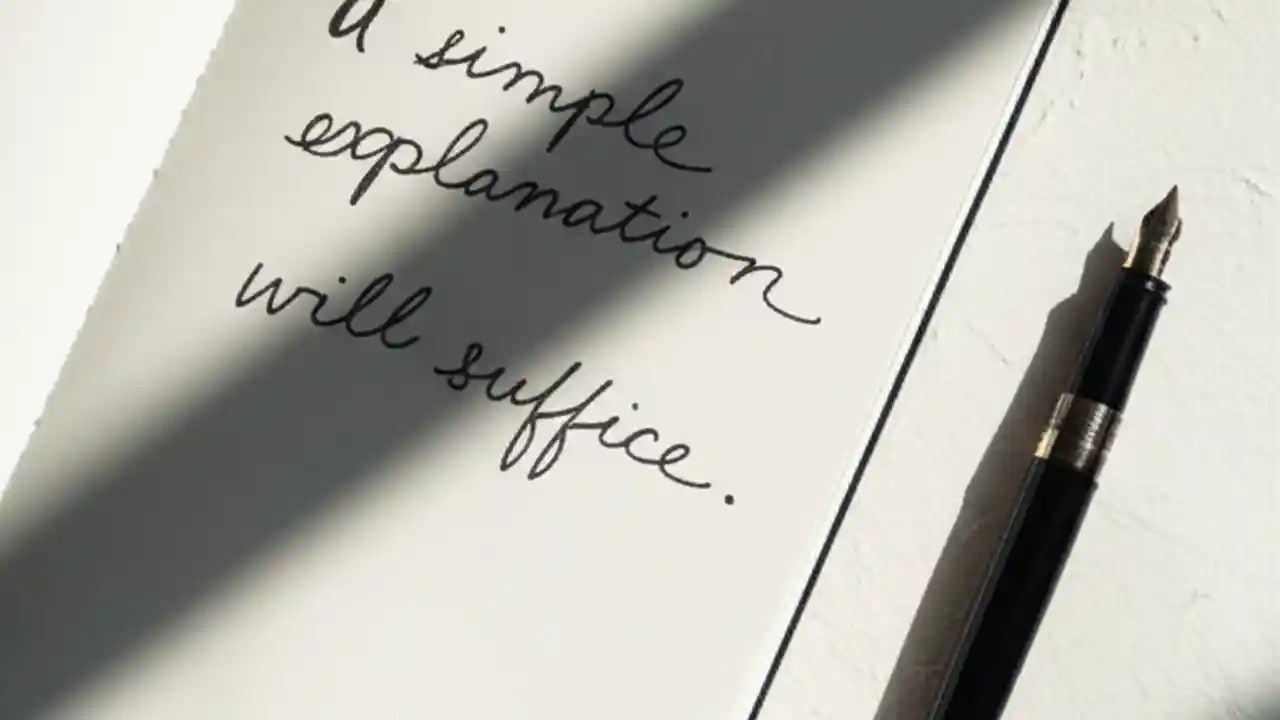 A simple
explanation
will suffice.